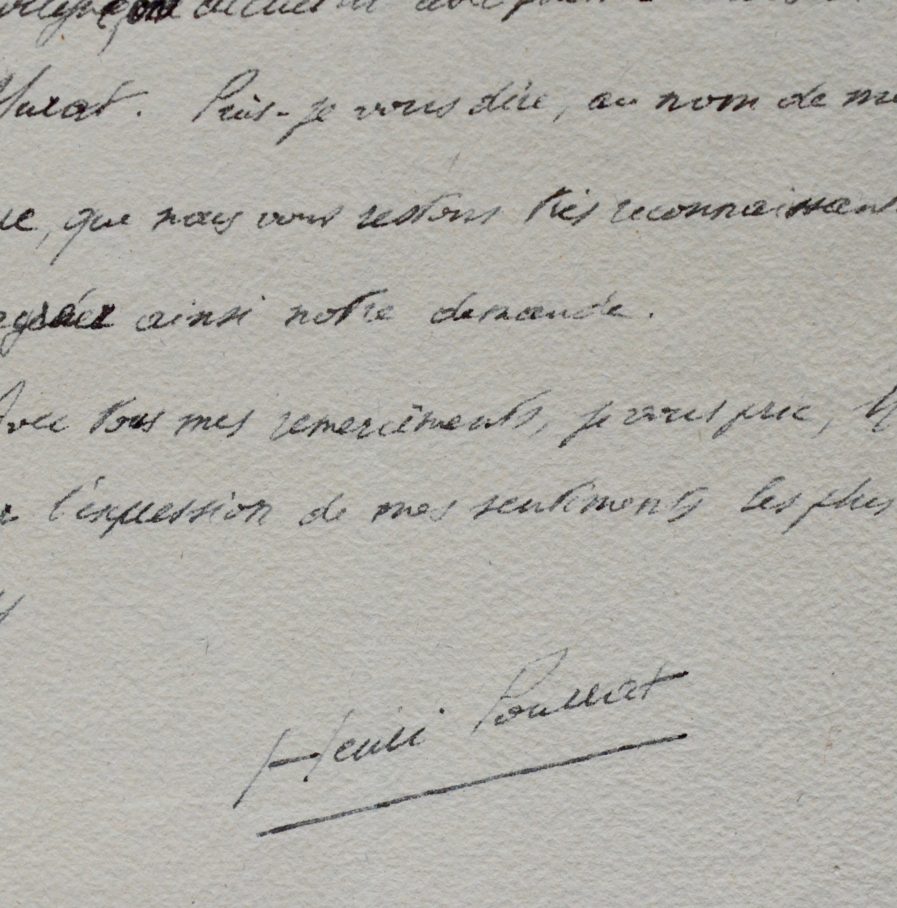 Murat. Puis-je vous dire, au nom de
que nous vous restons très reconnaissant
agréer ainsi notre demande.
Avec tous mes remerciements, je vous prie,
l'expression de mes sentiments les plus
Henri Pourrat